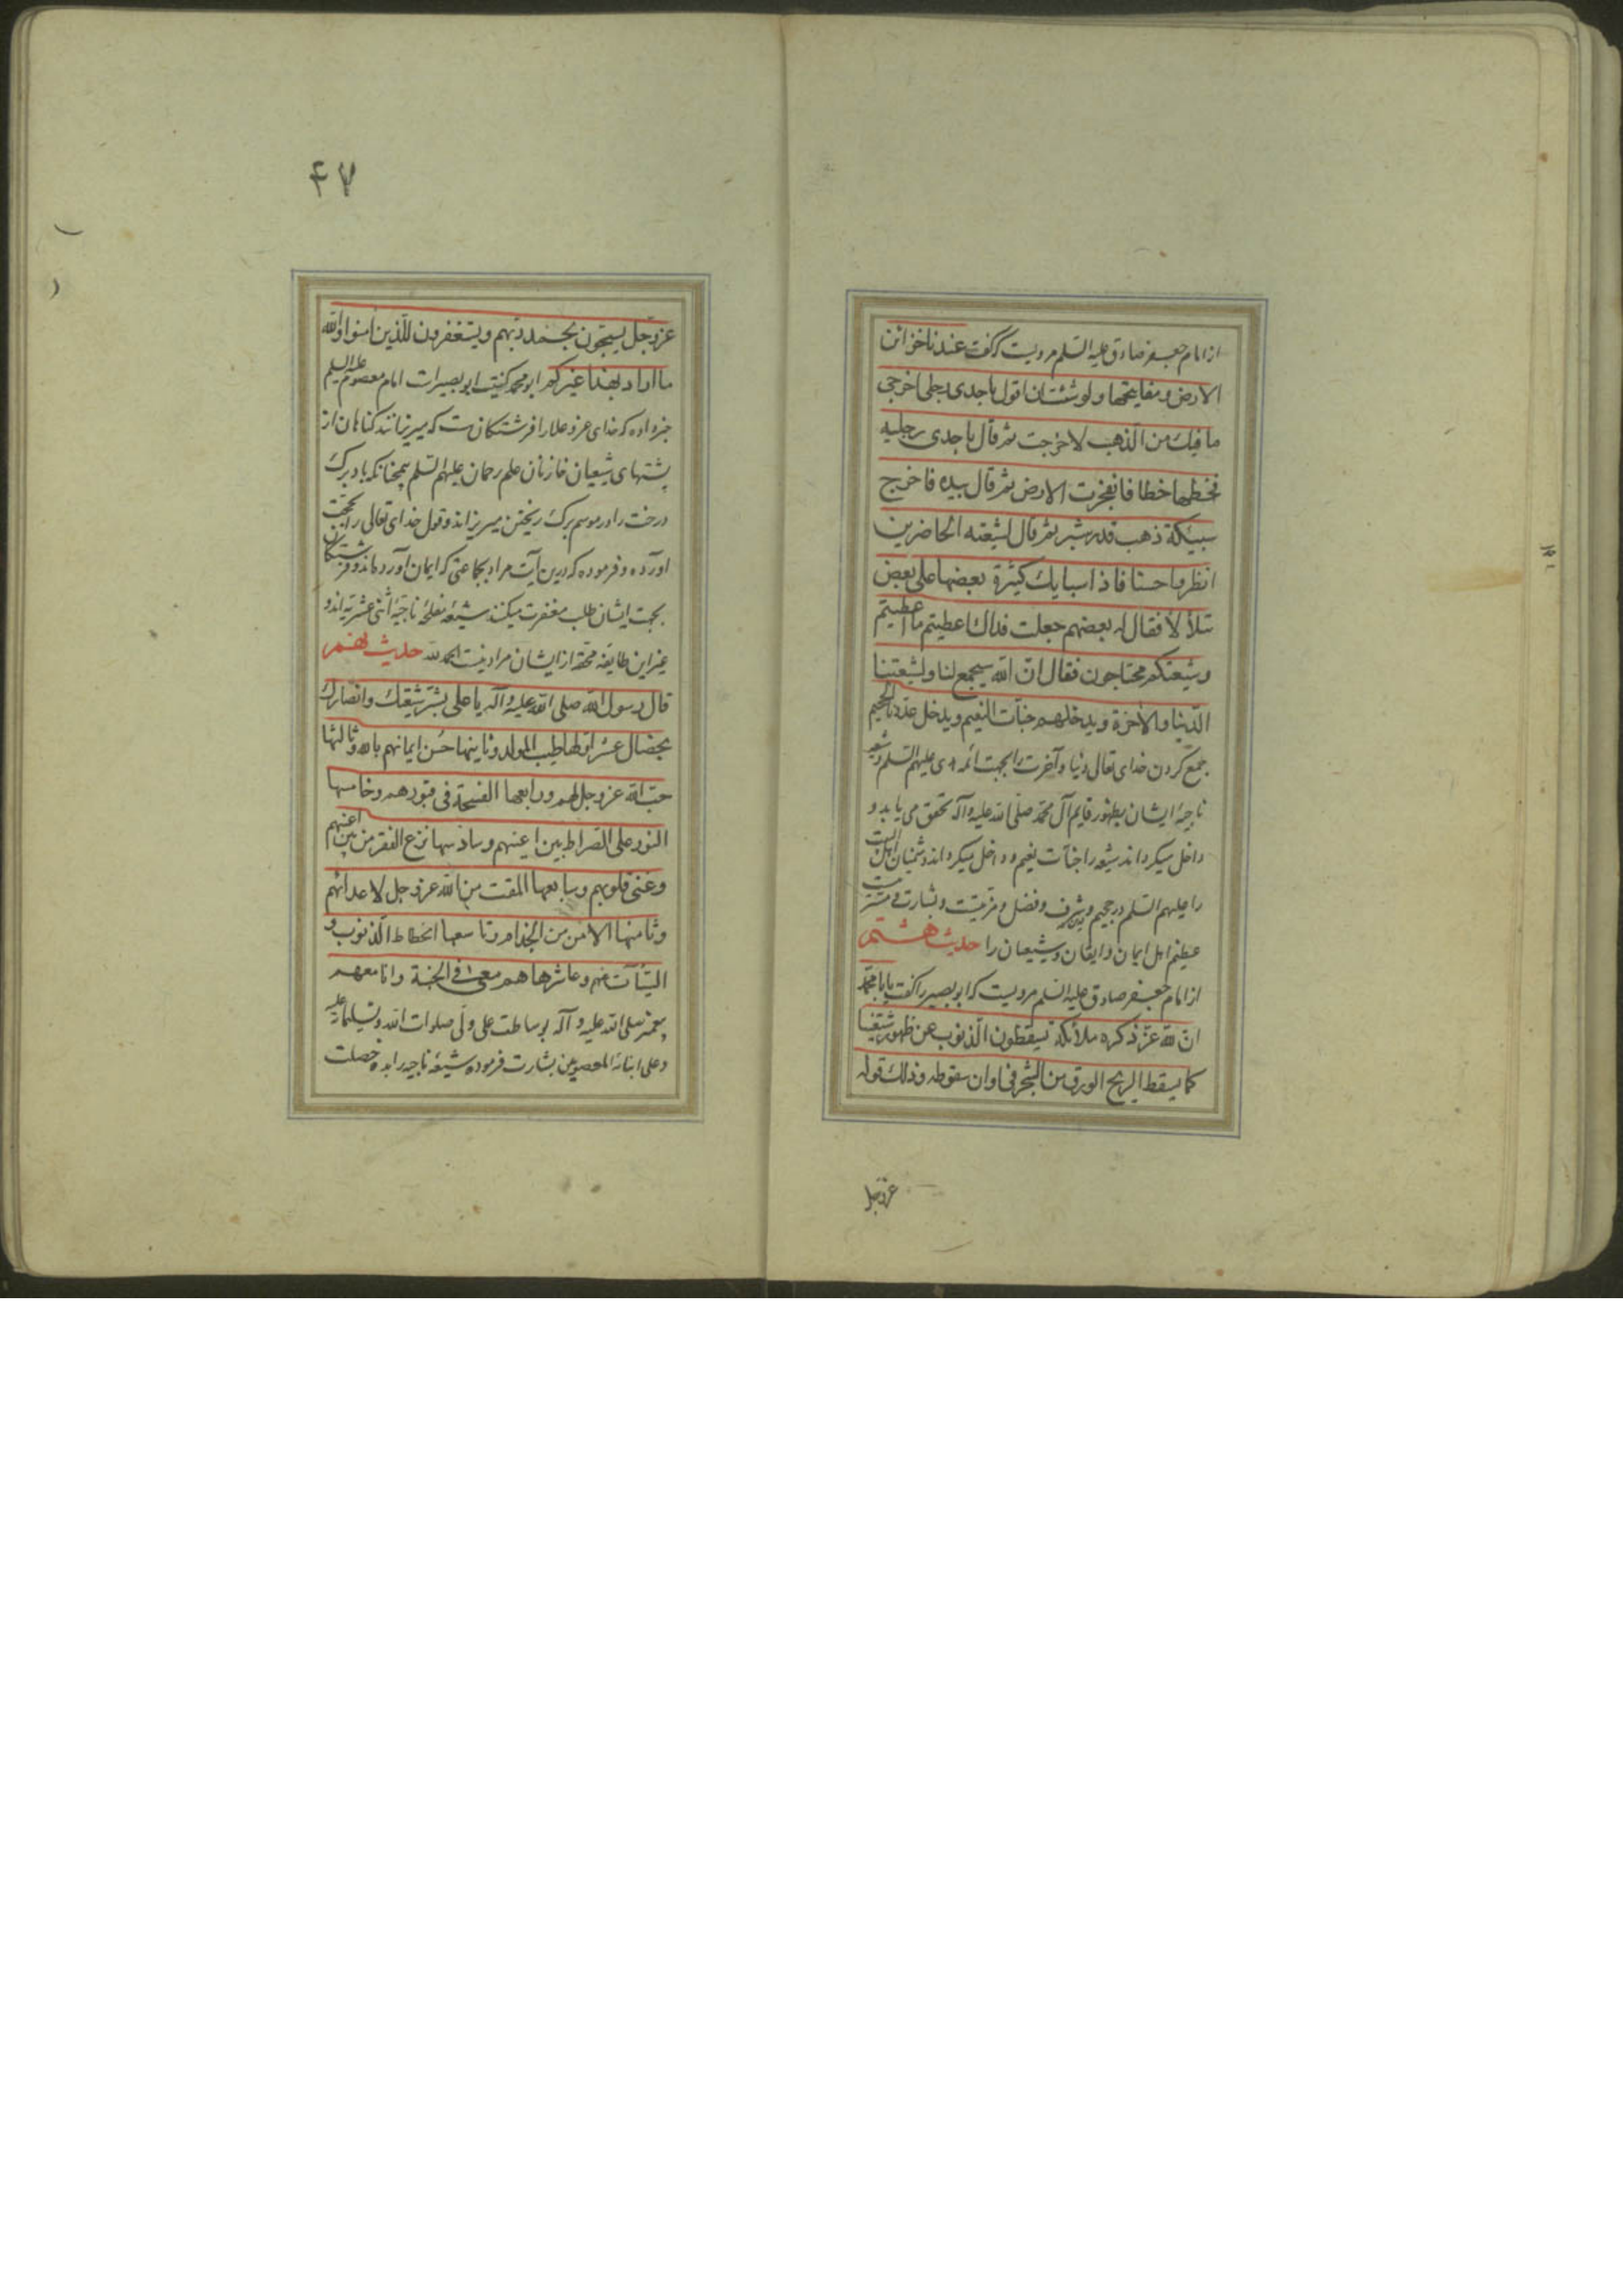 از امام جعفر صادق علیه السّلم مرویست که گفت عندنا خزائن
الارض و مفاتیحها و لو شئت ان اقول باحدی رجلی اخرجی
ما فیك من الذهب لاخرجت ثم قال باحدی رجلیه
فخطها خطا فانفجرت الارض ثم قال بیده فاخرج
سبیکة ذهب قدر شبر ثم قال لشیعته الحاضرین
انظروا حسنا فاذا سبایك کثیرة بعضها علی بعض
تتلألأ فقال له بعضهم جعلت فداك اعطیتم ما اعطیتم
و شیعتکم محتاجون فقال انّ الله سیجمع لنا و لشیعتنا
الدّنیا و الآخرة و یدخلهم جنّات النعیم و یدخل عدوّنا الجحیم
جمع کردن خدای تعالی دنیا و آخرت را بجهت ائمه هدی علیهم السّلم و شیعه
ناجیهٔ ایشان بظهور قایم آل محمّد صلّی الله علیه و آله تحقق می یابد و
داخل میگرداند شیعه را جنّات نعیم و داخل میگرداند دشمنان اهل البیت
را علیهم السّلم در جحیم و این شرف و فضل و مزیّت و بشارت و مسرّتست
عظیم اهل ایمان و ایقان و شیعیان را حدیث هشتم
از امام جعفر صادق علیه السّلم مرویست که ابو بصیر را گفت یا با محمّد
انّ لله عزّ ذکره ملائکة یسقطون الذّنوب عن ظهور شیعتنا
کما یسقط الریح الورق من الشجر فی اوان سقوطه و ذلك قوله
عزّ و جلّ
۴۷
عزّ و جلّ یسبّحون بحمد ربّهم و یستغفرون للّذین آمنوا و الله
ما اراد بهذا غیرکم ابو محمد کنیت ابو بصیرات امام معصوم علیه السلم
خبر داده که خدای عزّ و علا را فرشتکانست که میریزانند کناهان از
پشتهای شیعیان خازنان علم رحمان علیهم السّلم همچنانکه باد برك
درخت را در موسم برك ریختن میریزاند و قول خدای تعالی را بحجت
آورده و فرموده که درین آیت مراد بجماعتی که ایمان آورده اند و فرشتکان
بجهت ایشان طلب مغفرت میکنند شیعهٔ مفلحهٔ ناجیهٔ اثنی عشریه اند و
غیر این طایفهٔ محقّه از ایشان مراد نیست الحمد لله حدیث نهم
قال رسول الله صلی الله علیه و آله یا علی بشّر شیعتك و انصارك
بخصال عشر اوّلها طیب المولد و ثانیها حُسن ایمانهم بالله و ثالثها
حبّ الله عز و جل لهم و رابعها الفسحة فی قبورهم و خامسها
النور علی الصّراط بین اعینهم و سادسها نزع الفقر من بین اعینهم
و غنی قلوبهم و سابعها المقت من الله عزّ و جل لاعدائهم
و ثامنها الامن من الجذام و تاسعها انحطاط الذنوب و
السّیّآت عنهم و عاشرها هم معی فی الجنة و انا معهم
پیغمبر صلی الله علیه و آله بوساطت علیّ ولی صلوات الله و تسلیماته علیه
و علی ابنائه المعصومین بشارت فرموده شیعهٔ ناجیه را بده خصلت